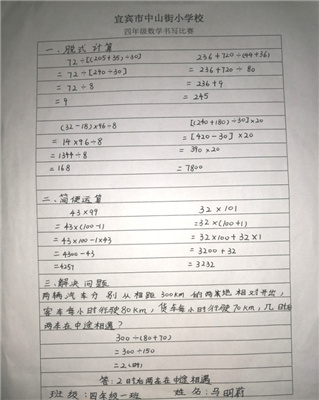 宜宾市中山街小学校
四年级数学书写比赛
一、脱式计算
72÷[(205+35)÷30] 236+720÷(44+36)
=72÷[240÷30] =236+720÷80
=72÷8 =236+9
=9 =245
(32-18)×96÷8 [(240+180)-30]×20
=14×96÷8 =[420-30]×20
=1344÷8 =390×20
=168 =7800
二、简便运算
43×99 32×101
=43×(100-1) =32×(100+1)
=43×100-1×43 =32×100+32×1
=4300-43 =3200+32
=4257 =3232
三、解决问题
两辆汽车分别从相距300km的两某地相对开出，
客车每小时行驶80km，货车每小时行驶70km，几时后
两车在中途相遇？
300÷(80+70)
=300÷150
=2(时)
答：2时后两车在中途相遇
班级：四年级一班 姓名：马明